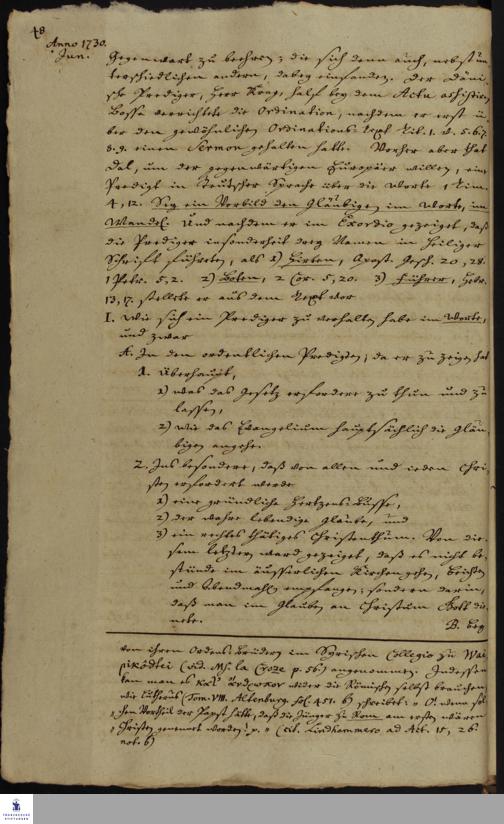 48
Anno 1730.
Jan.
Gegenwart zu beehren; die sich denn auch, nebst un-
terschiedlichen andern, dabey einfanden. Der Däni-
sche Prediger, Herr half bey dem Actu assistiren
Bosse verrichtete die Ordination, nachdem er erst ü-
ber den gewöhnlichen Ordinations-Text Tit. 1. v. 5. 6. 7.
8. 9. einen Sermon gehalten hatte. Vorher aber that
Dal, um der gegenwärtigen Europäer willen, eine
Predigt in Teutscher Sprache über die Worte 1 Tim.
4, 12. Sey ein Vorbild den Gläubigen im Worte, im
Wandel. Und nachdem er im Exordio gezeiget, daß
die Prediger insonderheit drey Namen in Heiliger
Schrifft führeten, als 1) Hirten, Apost. Gesch. 20, 28.
1 Petr. 5, 2. 2) Boten, 2 Cor. 5, 20. 3) Führer, Hebr.
13, 17. stellete er aus dem Text vor
I. Wie sich ein Prediger zu verhalten habe im Worte,
und zwar
A. In den ordentlichen Predigten, da er zu zeigen hat
1. Überhaupt,
1) was das Gesetz erfordere zu thun und zu
lassen,
2) wie das Evangelium hauptsächlich die Gläu-
bigen angehe.
2. Ins besondere, daß von allen und ieden Chri-
sten erfordert werde
1) eine gründliche Hertzens-Busse,
2) der wahre lebendige Glaube, und
3) ein rechtes thätiges Christenthum. Von die-
sem letztern ward gezeiget, daß es nicht be-
stünde im äusserlichen Kirchengehen, Beichten
und Abendmahl empfangen; sondern darin,
daß man im Glauben an Christum Gott die-
nete.
B. Bey
von ihren Ordens-Brüdern im Syrischen Collegio zu Wai-
picódtei (vid. Ms. la Croze p. 56) angenommen. Indessen
kan man es wider die Römischen selbst brauchen,
wie Lutherus (Tom. VIII. Altenburg. fol. 451. b) schreibet: „O! wenn sol-
„chen Vortheil der Papst hätte, daß die Jünger zu Rom am ersten wären
„Christen genennet worden! p. „ (cit. Lindhammero ad Act. 11, 26.
not. b)
FRANCKESCHE
STIFTUNGEN